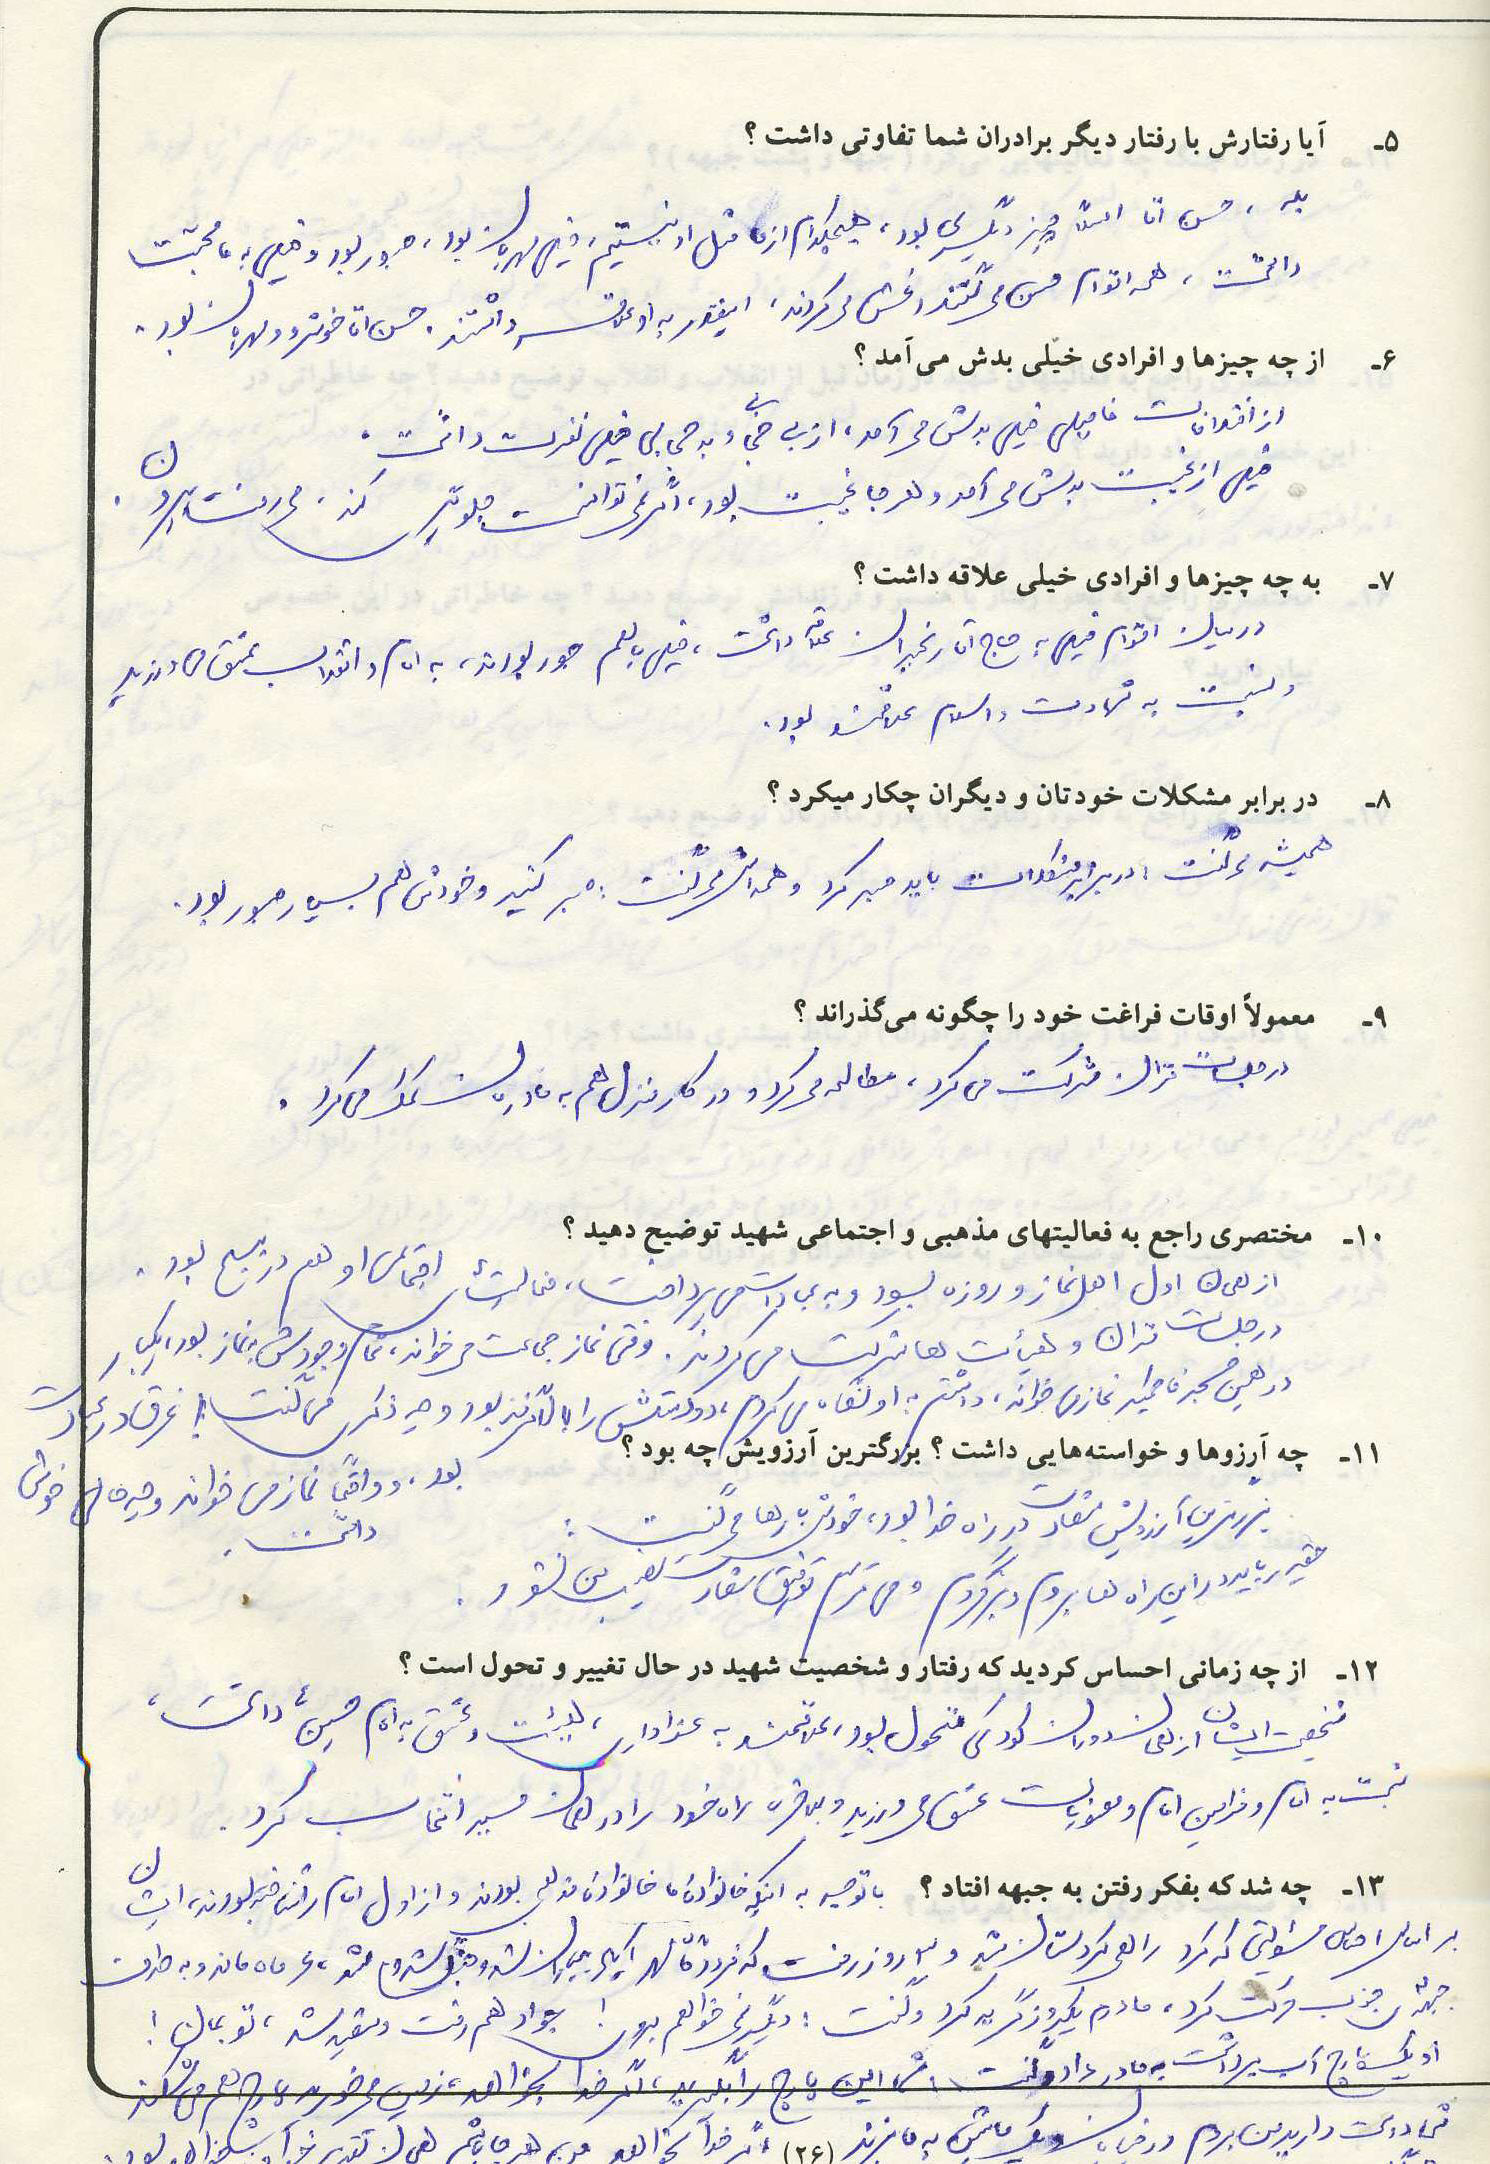 ۵- آیا رفتارش با رفتار دیگر برادران شما تفاوتی داشت ؟
بله ، حسن آقا اصلاً چیز دیگری بود ، هیچکدام از ما مثل او نیستیم ، خیلی مهربان بود ، صبور بود و خیلی به ما محبّت
داشت ، همه اقوام حسن می گفتند و غش می کردند ، اینقدر به او علاقه داشتند . حسن آقا خوشرو و مهربان بود .
۶- از چه چیزها و افرادی خیلی بدش می آمد ؟
از خیلی بدش می آمد ، از بی حجابی و بد حجابی خیلی نفرت داشت .
خیلی از غیبت بدش می آمد و هر جا غیبت بود ، اگر نمی توانست جلوگیری کند ، می رفت بیرون .
۷- به چه چیزها و افرادی خیلی علاقه داشت ؟
در میان اقوام خیلی به حاج آقا رنجبران علاقه داشت ، خیلی با هم جور بودند ، به امام و انقلاب عشق می ورزید
و نسبت به شهادت و اسلام علاقمند بود .
۸- در برابر مشکلات خودتان و دیگران چکار میکرد ؟
همیشه می گفت : در برابر مشکلات باید صبر کرد و همه اش می گفت : صبر کنید و خودش هم بسیار صبور بود .
۹- معمولاً اوقات فراغت خود را چگونه می‌گذراند ؟
در جلسات قرآن شرکت می کرد ، مطالعه می کرد و در کار منزل هم به مادرمان کمک می کرد .
۱۰- مختصری راجع به فعالیتهای مذهبی و اجتماعی شهید توضیح دهید ؟
از همان اول اهل نماز و روزه بود و به عبادات می پرداخت ، فعالیت اجتماعی او هم در بسیج بود .
در جلسات قرآن و هیأت ها شرکت می کردند . وقتی نماز جماعت می خواند ، تمام وجودش به نماز بود ، یکبار
در همین مسجد نماز می خواند ، داشتم به او نگاه می کردم ، دو دستش را بالا گرفته بود و چه ذکری می گفت غرق در عبادت
۱۱- چه آرزوها و خواسته‌هایی داشت ؟ بزرگترین آرزویش چه بود ؟
بود ، و واقعاً نماز می خواند و چه حال خوشی
داشت .
بزرگترین آرزویش شهادت در راه خدا بود ، خودش بارها می گفت :
حقیر باید در این راه ها بروم و برگردم و می ترسم توفیق شهادت نصیب من نشود .
۱۲- از چه زمانی احساس کردید که رفتار و شخصیت شهید در حال تغییر و تحول است ؟
شخصیت ایشان از همان دوران کودکی متحول بود ، علاقمند به عزاداری ، هیئت و عشق به امام حسین (ع) داشت ،
نسبت به امام و فرامین امام و معنویات عشق می ورزید و بالاخره راه خود را در همان مسیر انتخاب کرد .
۱۳- چه شد که بفکر رفتن به جبهه افتاد ؟ با توجه به اینکه خانوادۀ ما خانوادۀ مذهبی بودند و از اول امام را شناخته بودند ، ایشان
بر اساس احساس مسئولیتی که کرد راهی کردستان شد و روز رفت که ماه ماند و به طرف
جبهه ی جنوب حرکت کرد ، مادرم یکروز گریه کرد و گفت : دیگر نمی خواهم بروی ! جواد هم رفت و شهید شد ، تو بمان !
او یک پارچ آب برداشت به مادر داد و گفت این پارچ را بگیرید ، اگر خدا بخواهد ، زمین می خورید پارچ هم می شکند
دوست دارید من بروم در خیابان و یک ماشین به ما بزند (۲۶) اگر خدا بخواهد من هر جا باشم